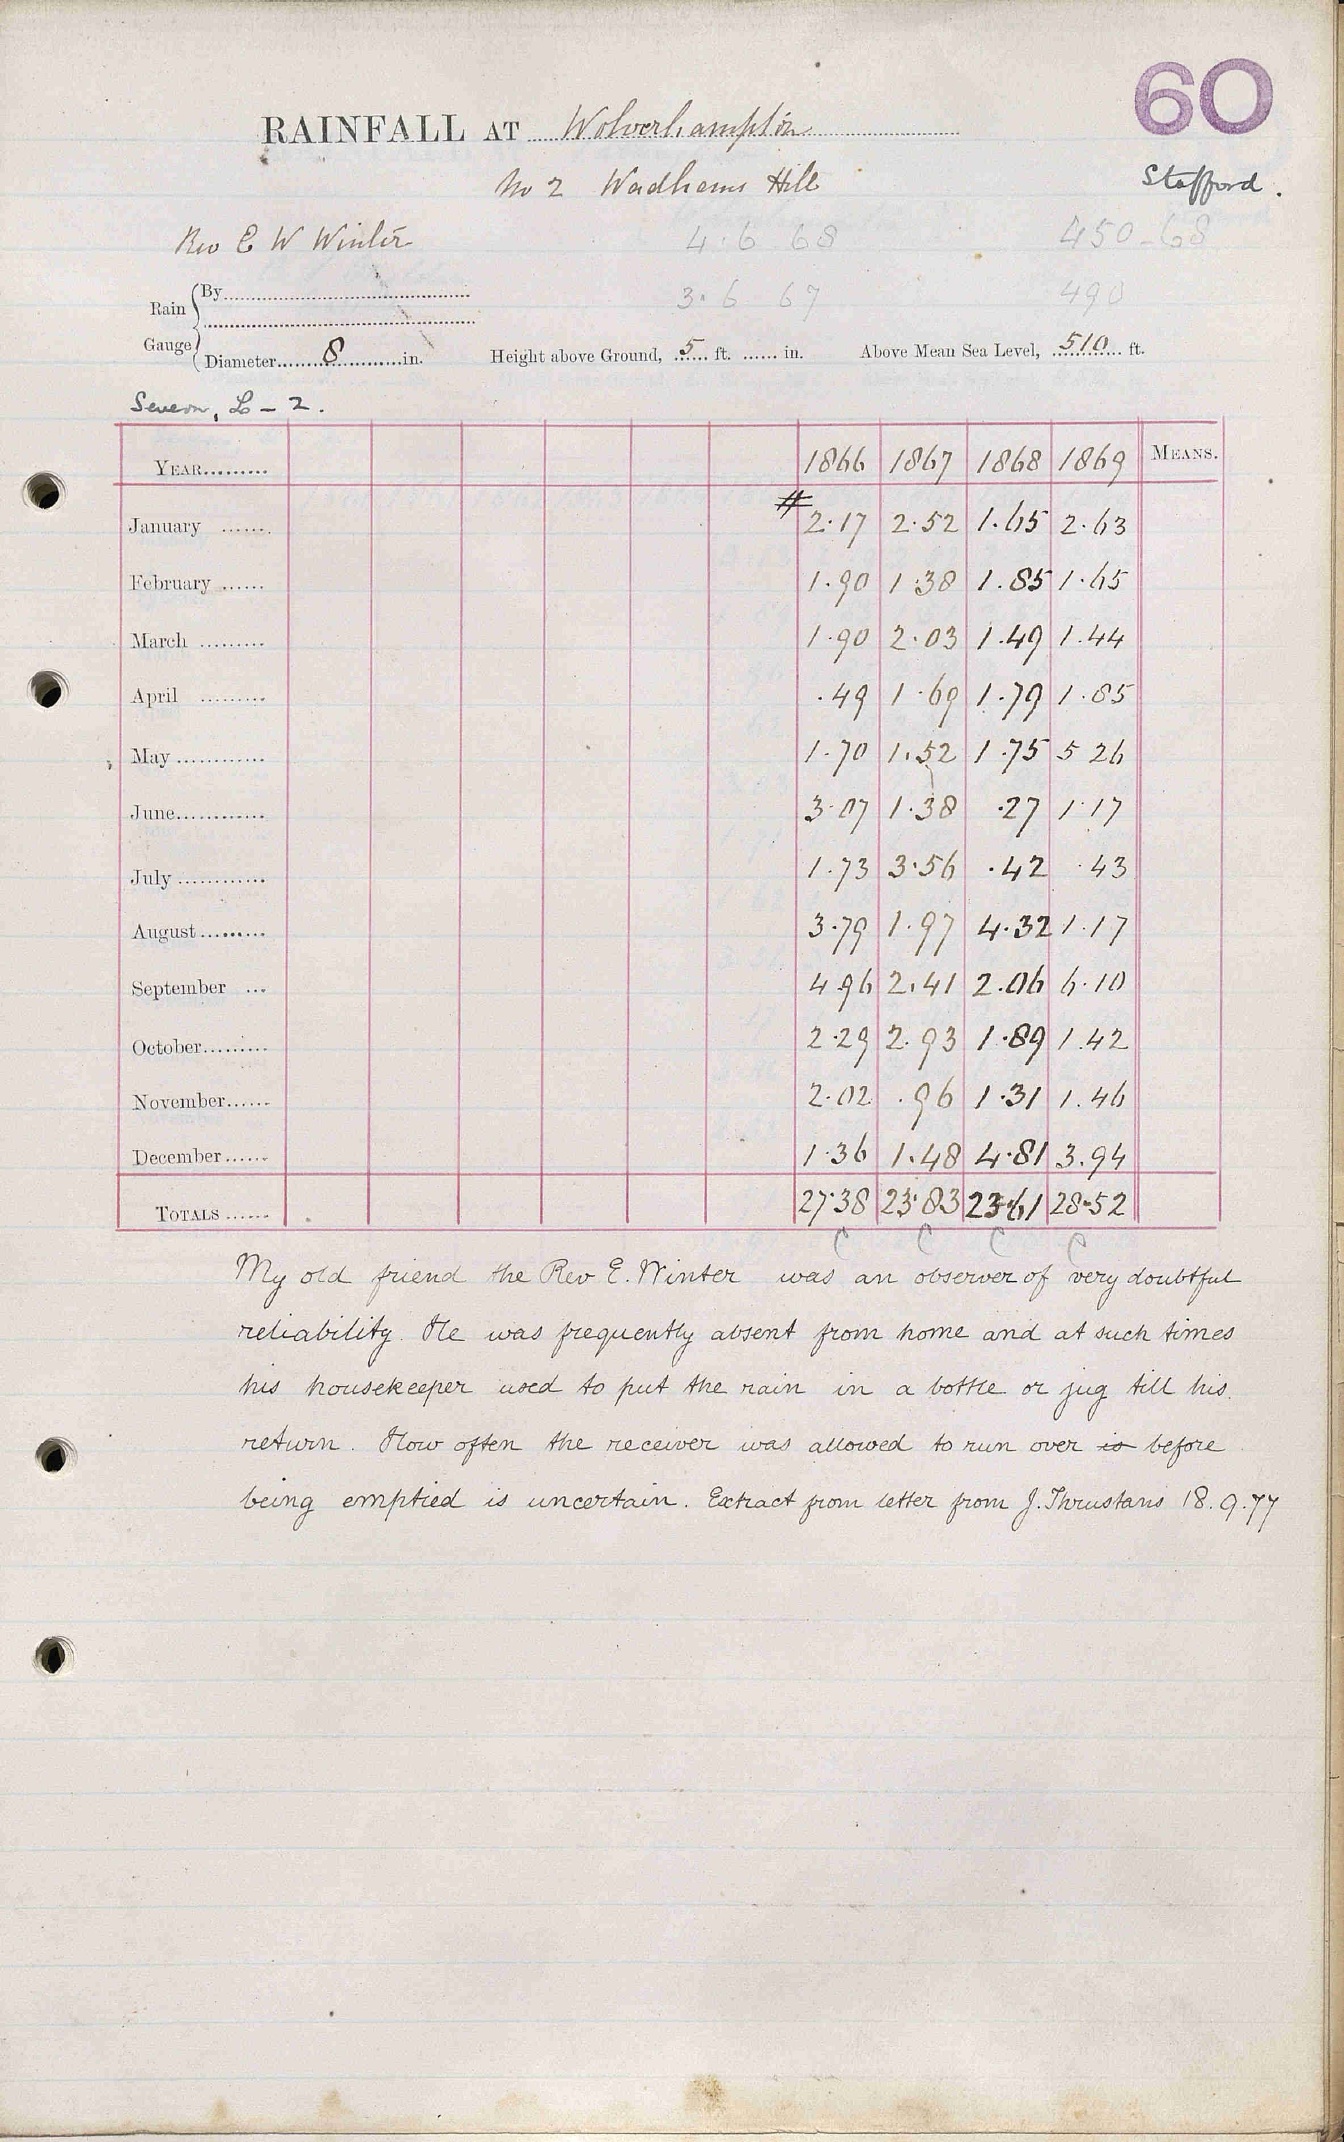 60
RAINFALL AT Wolverhampton
No 2 Wadhams Hill
Stafford.
Rev E W Winter
4.6 68
450-68
Rain Gauge
By
3.6 67
490
Diameter 8 in.
Height above Ground, 5 ft. in.
Above Mean Sea Level, 510 ft.
Severn, L - 2.
YEAR 1866 1867 1868 1869 MEANS.
January # 2.17 2.52 1.65 2.63
February 1.90 1.38 1.85 1.65
March 1.90 2.03 1.49 1.44
April .49 1.69 1.79 1.85
May 1.70 1.52 1.75 5 26
June 3.07 1.38 .27 1.17
July 1.73 3.56 .42 .43
August 3.79 1.97 4.32 1.17
September 4 96 2.41 2.06 6.10
October 2.29 2.93 1.89 1.42
November 2.02 .96 1.31 1.46
December 1.36 1.48 4.81 3.94
TOTALS 27.38 23.83 23.61 28.52
C C C C
My old friend the Rev E. Winter was an observer of very doubtful
reliability. He was frequently absent from home and at such times
his housekeeper used to put the rain in a bottle or jug till his
return. How often the receiver was allowed to run over is before
being emptied is uncertain. Extract from letter from J. Thrustans 18.9.77